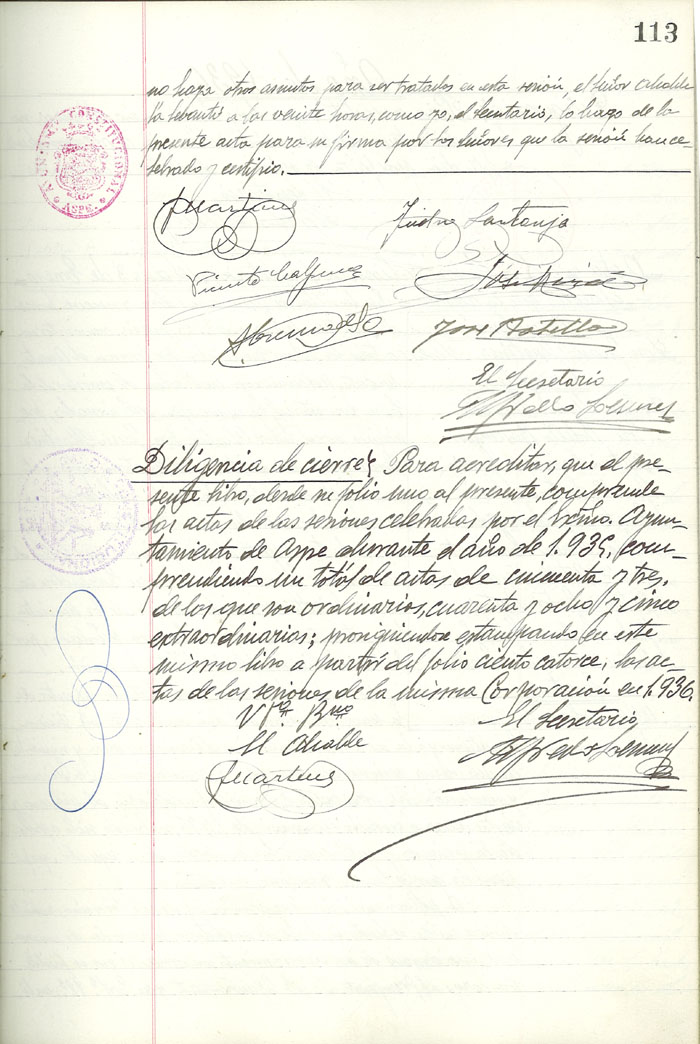 113
no haya otros asuntos para ser tratados en esta sesión, el señor Alcalde
la levantó a las veinte horas, como yo, el Secretario, lo hago de la
presente acta para su firma por los señores que la sesión han ce-
lebrado y certifico.
AYUNTAMº CONSTITUCIONAL
ASPE
Vicente
José
José Botella
El Secretario
Alfredo
Diligencia de cierre; Para acreditar, que el pre-
sente libro, desde su folio uno al presente, comprende
las actas de las sesiones celebradas por el Excmo. Ayun-
tamiento de Aspe durante el año de 1.935, com-
prendiendo un total de actas de cincuenta y tres,
de los que son ordinarias, cuarenta y ocho y cinco
extraordinarias; prosiguiendose estampando en este
mismo libro a partir del folio ciento catorce, las ac-
tas de las sesiones de la misma Corporación en 1.936.
Vº Bno
El Alcalde
El Secretario
Alfredo